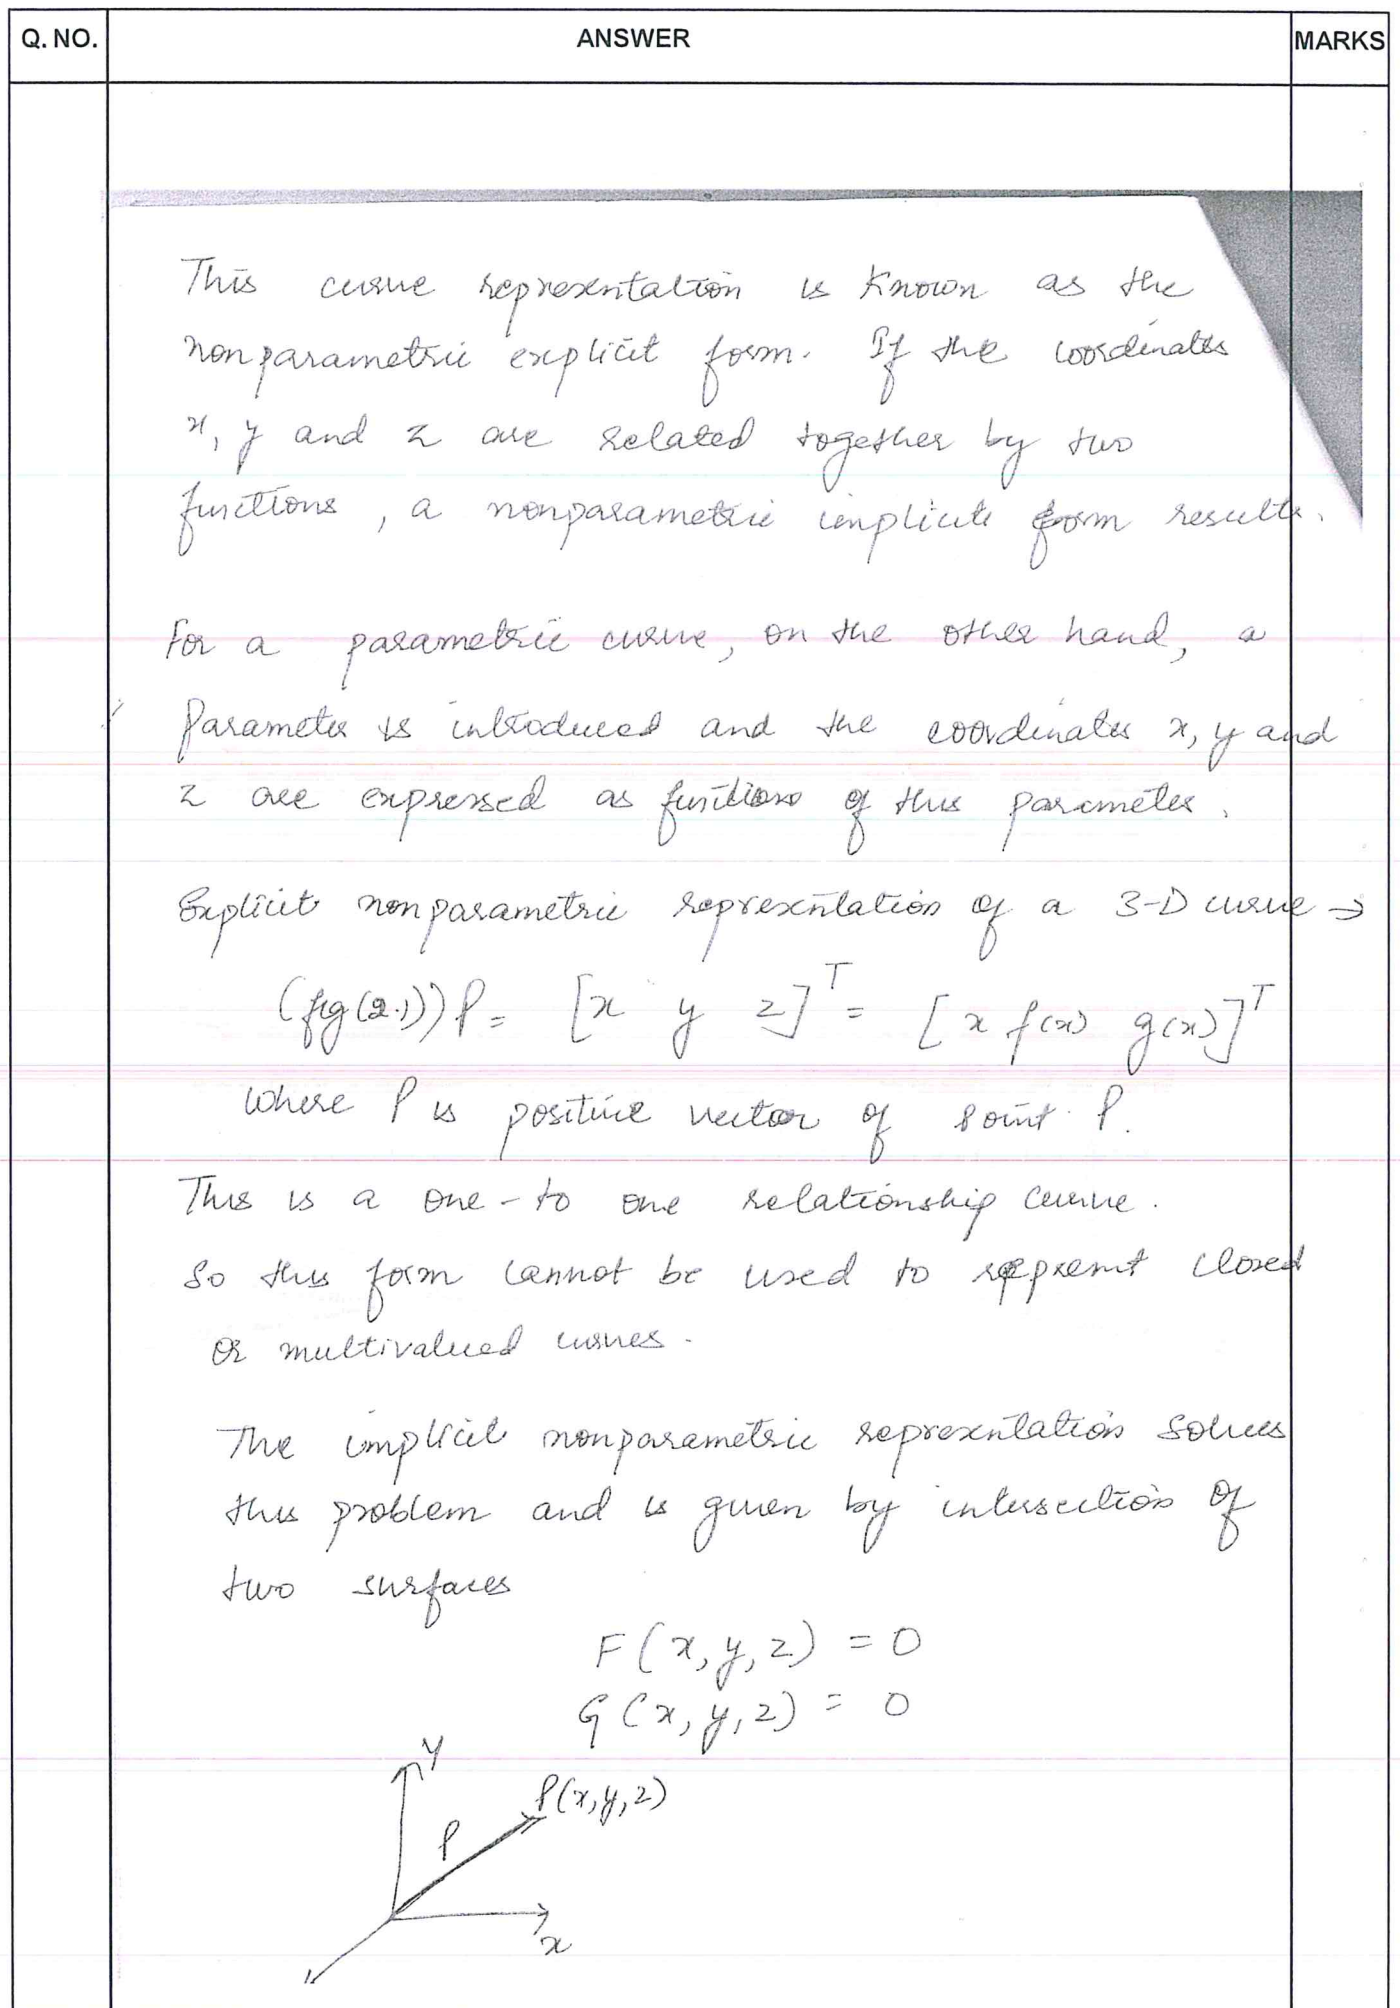 Q. NO. ANSWER MARKS
This curve representation is known as the
nonparametric explicit form. If the coordinates
x, y and z are related together by two
functions, a nonparametric implicit form results.
For a parametric curve, on the other hand, a
Parameter is introduced and the coordinates x, y and
z are expressed as functions of this parameter.
Explicit nonparametric representation of a 3-D curve →
(fig(2.1)) P = [x y z]ᵀ = [x f(x) g(x)]ᵀ
Where P is positive vector of point P.
This is a one-to one relationship curve.
So this form cannot be used to represnt closed
or multivalued curves.
The implicit nonparametric representation solves
this problem and is given by intersection of
two surfaces
F(x, y, z) = 0
G(x, y, z) = 0
y
P(x, y, z)
P
x